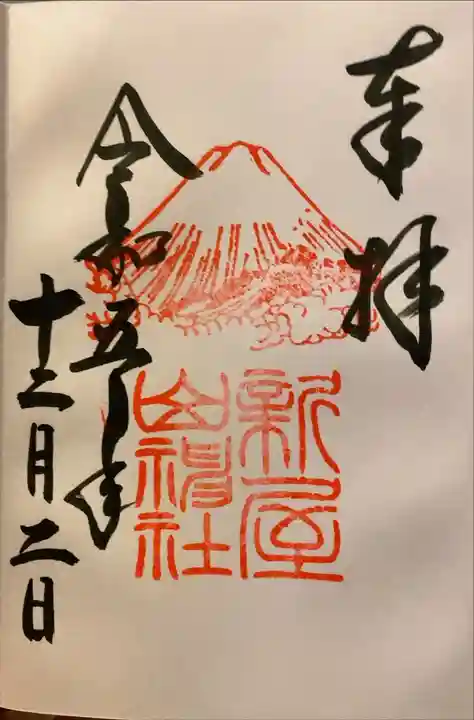 奉拝
新屋
山神社
令和五年
十二月二日